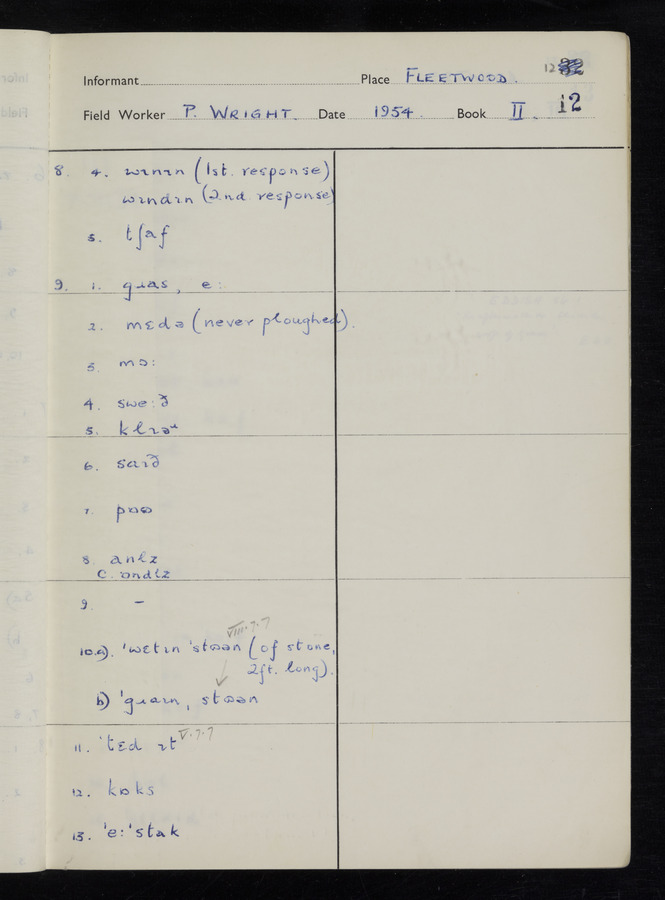 Informant Place FLEETWOOD. 12
Field Worker P. WRIGHT. Date 1954. Book II. 12
8. 4. wɪnɪn (1st. response)
wɪndɪn (2nd response)
5. tʃaf
9. 1. gɹas, e:
2. mɛdə (never ploughed).
3. mɔ:
4. swe:ð
5. klɪəɹ
6. saɪð
7. pɒʊ
8. anlz
C. ɒndlz
9. –
VIII.7.7
10.a). ˈwɛtɪn ˈstoən (of stone,
2ft. long).
b) ˈgɹaɪn, stoən
11. ˈtɛd ɪt V.7.7
12. kɒks
13. ˈe:ˈstak